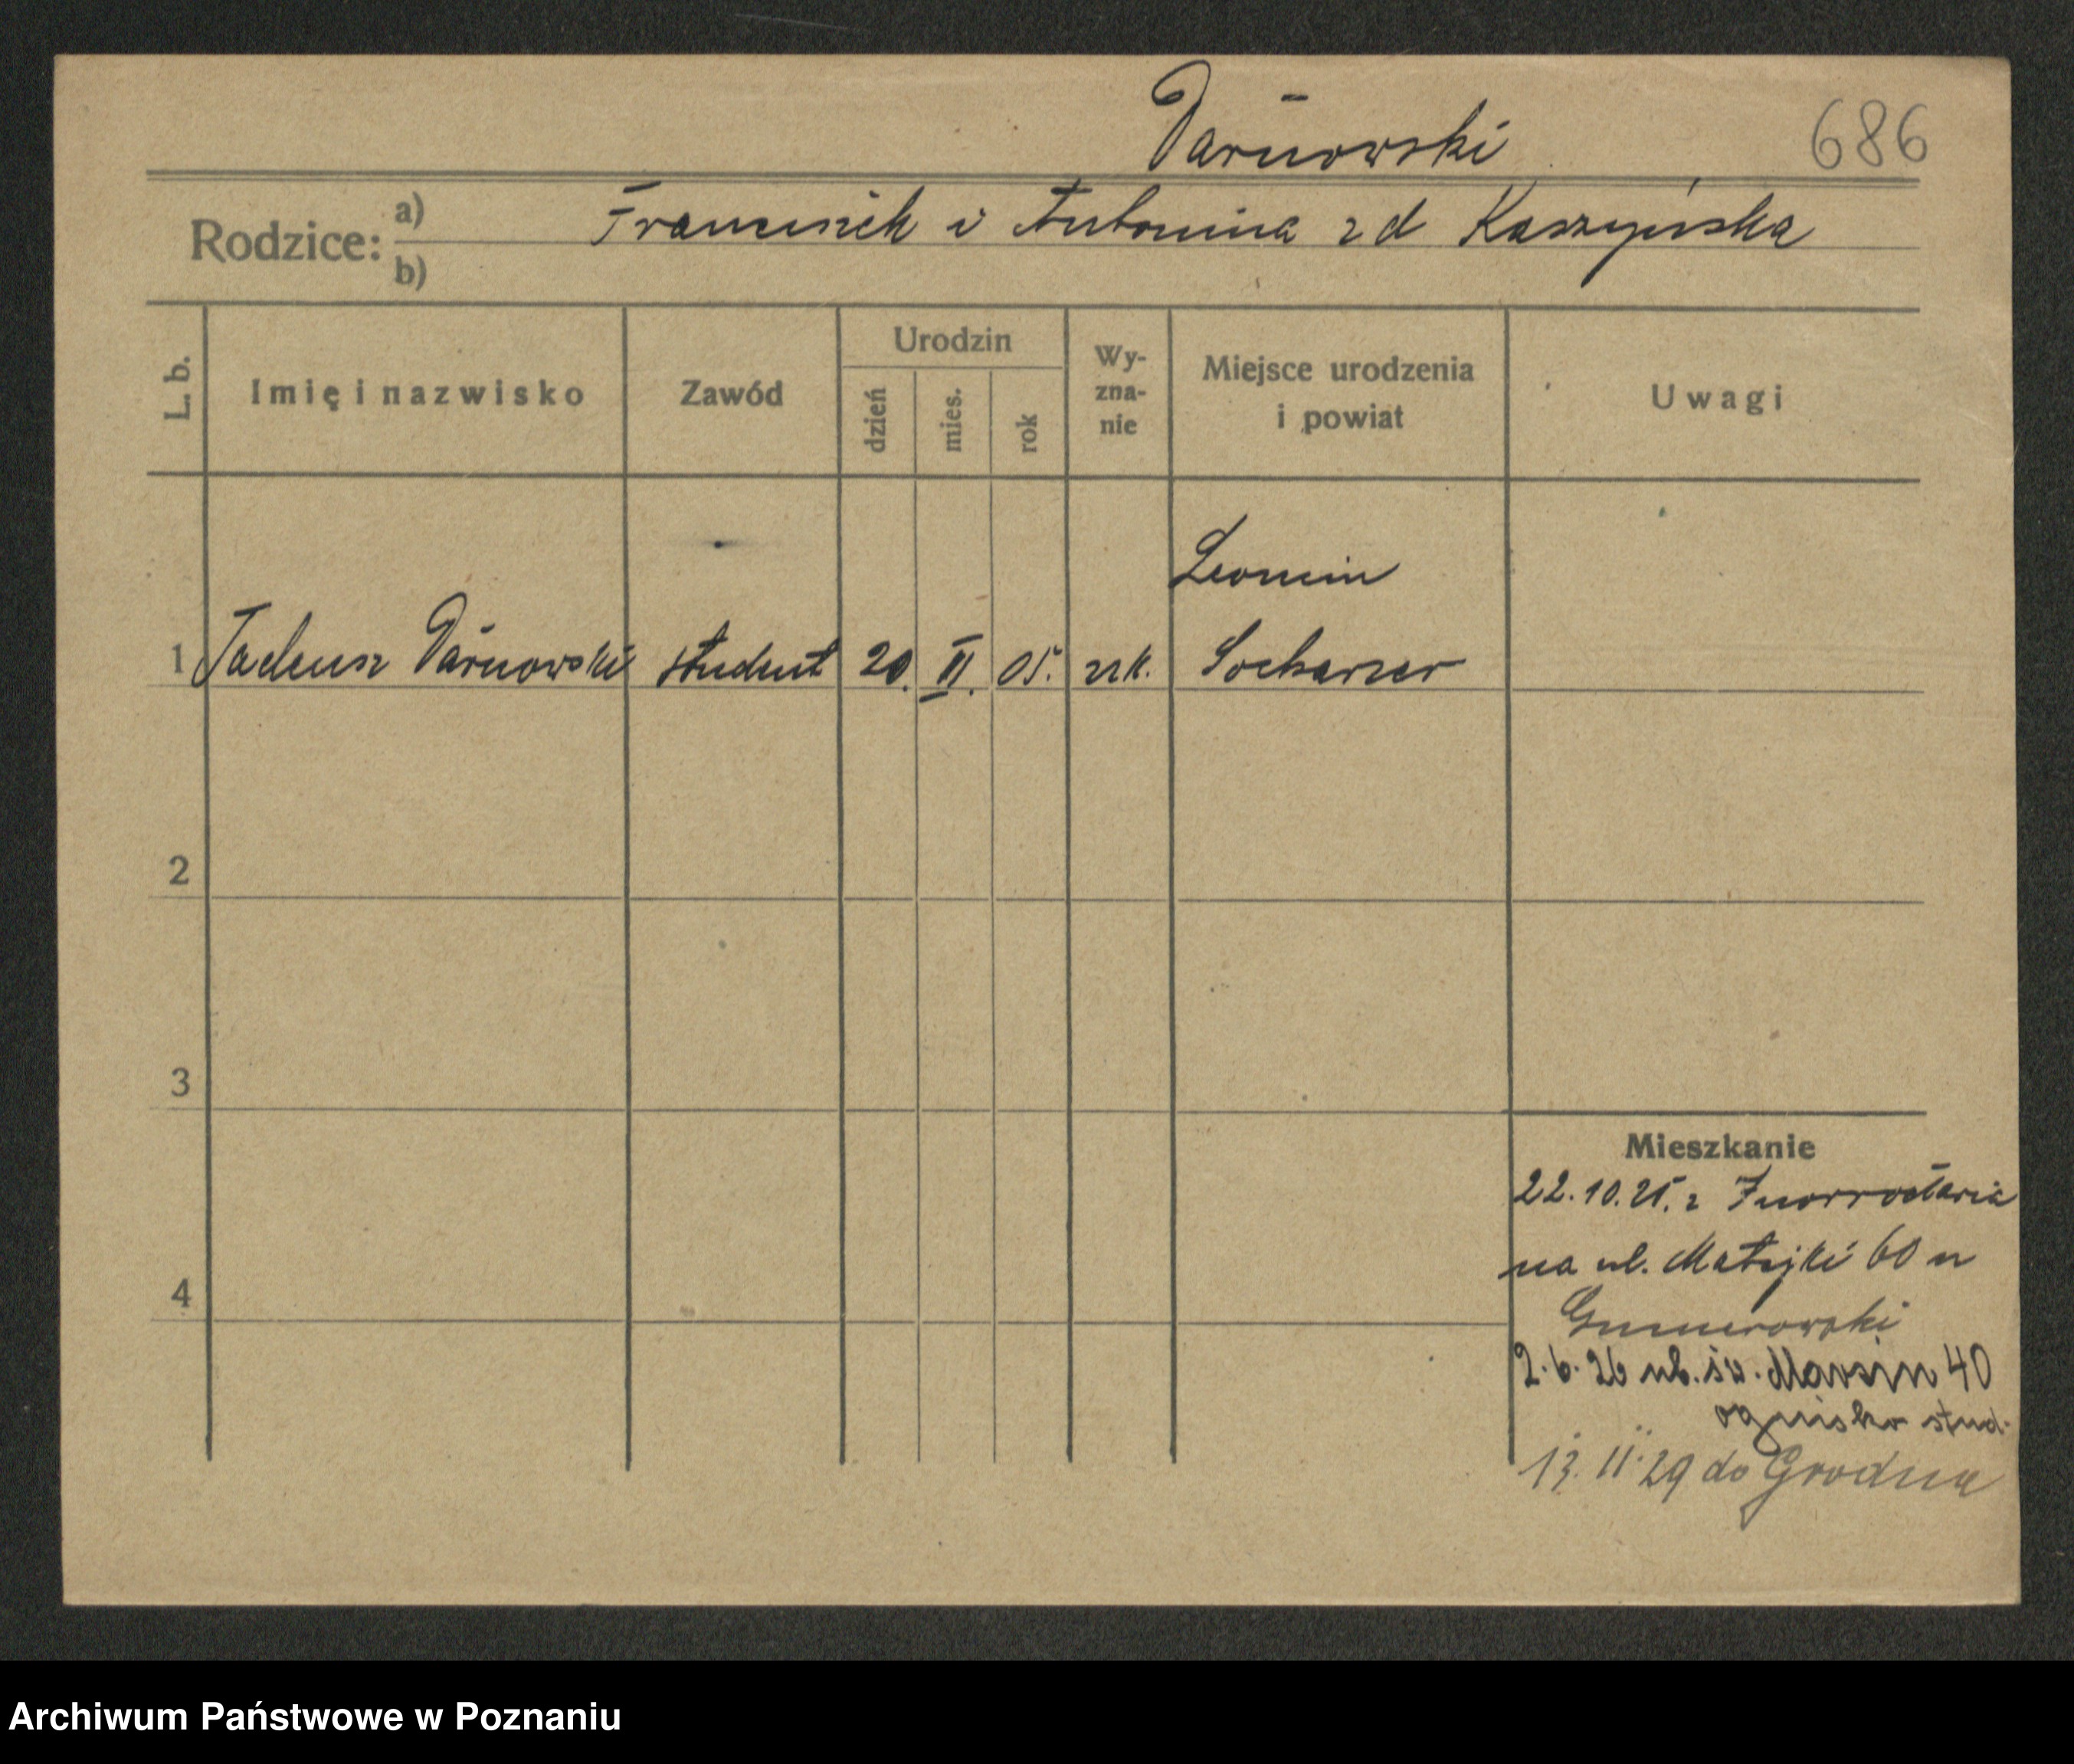 Darnowski
686
Rodzice: a) Franciszek i Antonina z d Kaszyńska
b)
L. b.
Imię i nazwisko
Zawód
Urodzin
dzień
mies.
rok
Wy-
zna-
nie
Miejsce urodzenia
i powiat
Uwagi
Leonin
1 Tadeusz Darnowski student 20. II. 05. rzk. Sochaczew
2
3
4
Mieszkanie
22.10.25. z Inowrocławia
na ul. Matejki 60 u
2.6.26 ul. św. Marcin 40
ognisko stud.
13. II. 29 do Grodna
Archiwum Państwowe w Poznaniu